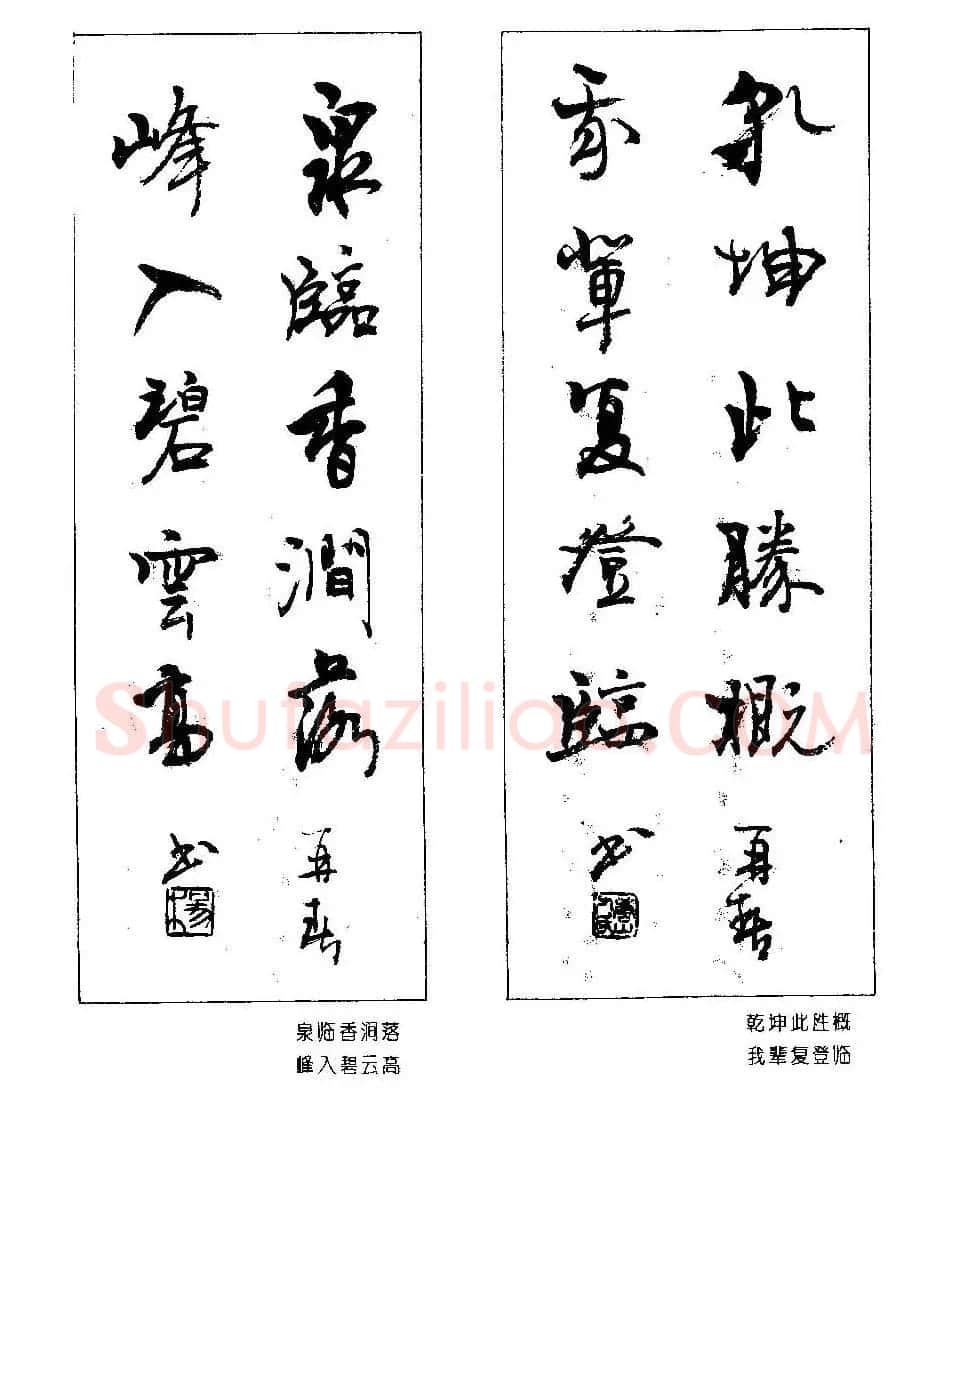 乾坤此勝概 再春
我輩复登臨 书
乾坤此胜概
我辈复登临
泉臨香澗落 再春
峰入碧雲高 书
泉临香涧落
峰入碧云高
Shufaziliao.COM